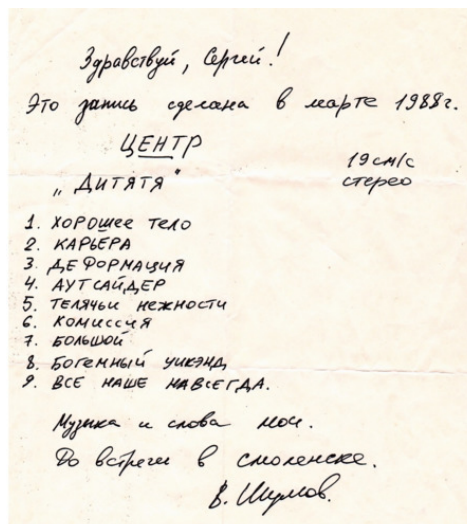 Здравствуй, Сергей!
Это запись сделана в марте 1988г.
ЦЕНТР
19 см/с
„Дитятя“
стерео
1. ХОРОШЕЕ ТЕЛО
2. КАРЬЕРА
3. ДЕФОРМАЦИЯ
4. АУТСАЙДЕР
5. ТЕЛЯЧЬИ НЕЖНОСТИ
6. КОМИССИЯ
7. БОЛЬШОЙ
8. БОГЕМНЫЙ УИКЭНД
9. ВСЕ НАШЕ НАВСЕГДА.
Музыка и слова мои.
До встречи в Смоленске.
В. Шумов.